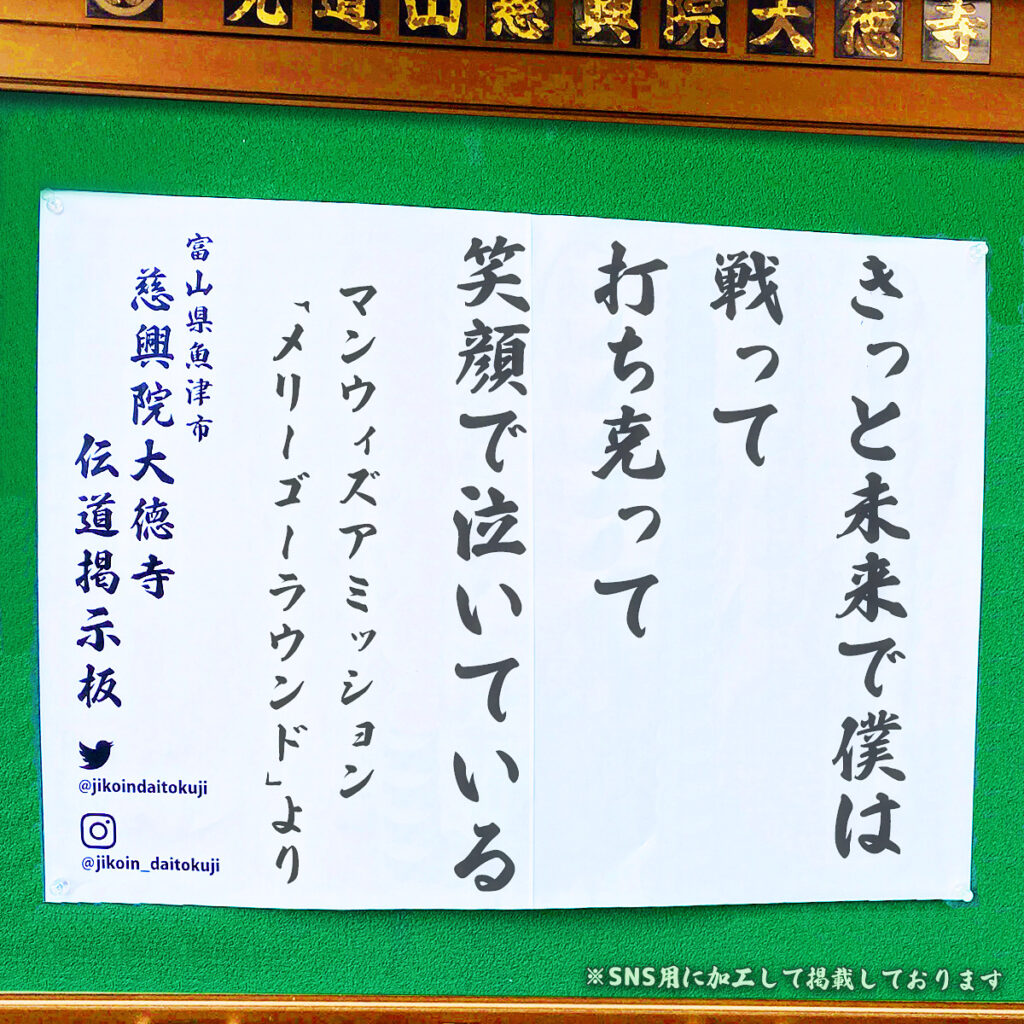 光道山慈興院大徳寺
きっと未来で僕は
戦って
打ち克って
笑顔で泣いている
マンウィズアミッション
「メリーゴーラウンド」より
富山県魚津市
慈興院大徳寺
伝道掲示板
@jikoindaitokuji
@jikoin_daitokuji
※SNS用に加工して掲載しております